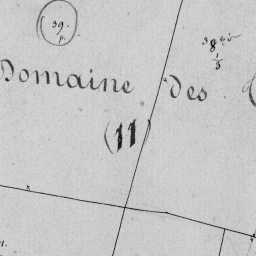 39.
p.
38
1/5
Domaine des
(11)